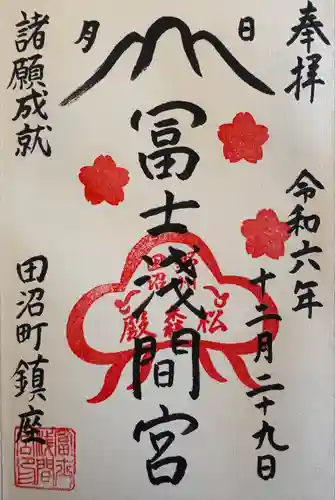 奉拝
令和六年
十二月二十九日
日
月
冨士浅間宮
田沼
松森殿
諸願成就
田沼町鎮座